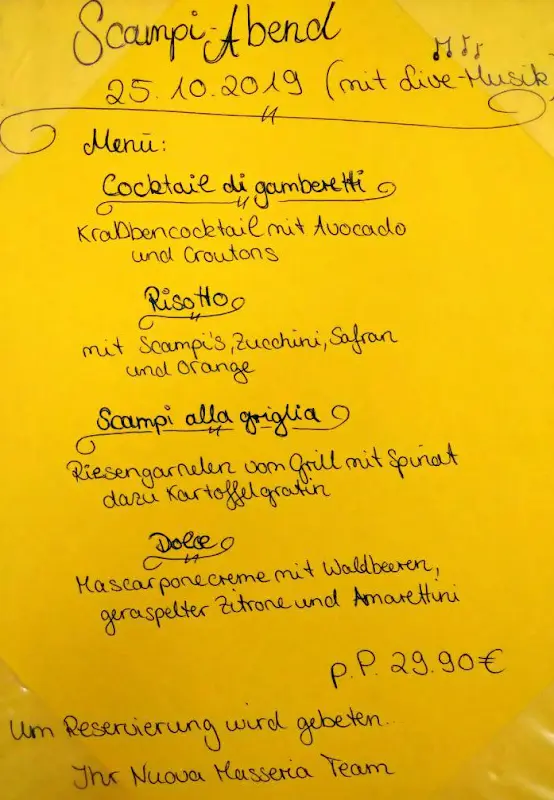 Scampi-Abend
25.10.2019 (mit Live-Musik)
Menü:
Cocktail di gamberetti
Kraßbencocktail mit Avocado
und Croutons
Risotto
mit Scampi's, Zucchini, Safran
und Orange
Scampi alla griglia
Riesengarnelen vom Grill mit Spinat
dazu Kartoffelgratin
Dolce
Mascarponecreme mit Waldbeeren,
geraspelter Zitrone und Amarettini
p.P. 29.90€
Um Reservierung wird gebeten..
Ihr Nuova Masseria Team